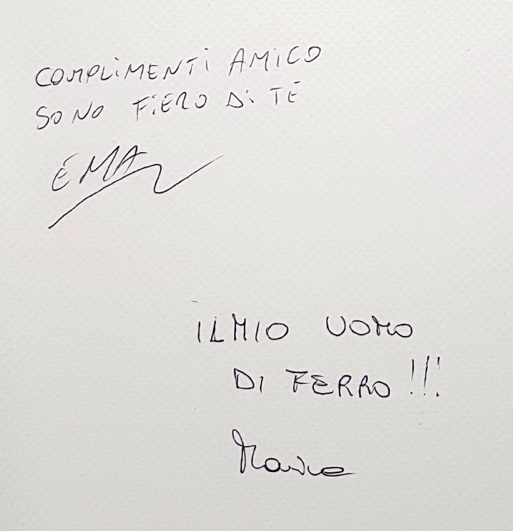 COMPLIMENTI AMICO
SONO FIERO DI TE
EMA
IL MIO UOMO
DI FERRO!!!